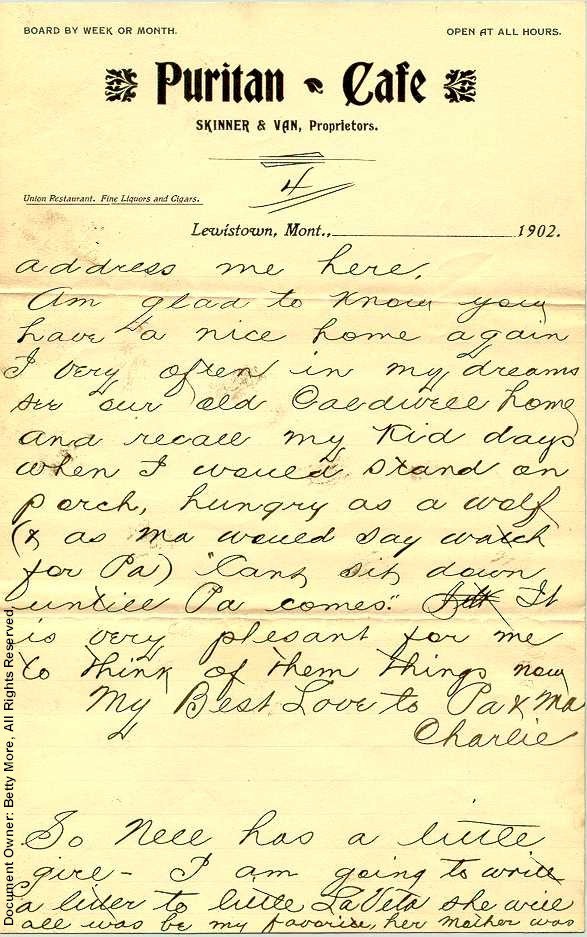 BOARD BY WEEK OR MONTH. OPEN AT ALL HOURS.
Puritan Cafe
SKINNER & VAN, Proprietors.
4
Union Restaurant. Fine Liquors and Cigars.
Lewistown, Mont., 1902.
address me here.
Am glad to know you
have a nice home again
I very often in my dreams
see our old Caldwell home
and recall my Kid days
when I would stand on
porch, hungry as a wolf
(& as ma would say watch
for Pa) "Cant sit down
untill Pa comes." It
is very plesant for me
to think of them things now
My Best Love to Pa & Ma
Charlie
So Nell has a little
girl - I am going to write
a letter to little LaVeta she will
all was be my favorite, her mother was
Document Owner: Betty More, All Rights Reserved,